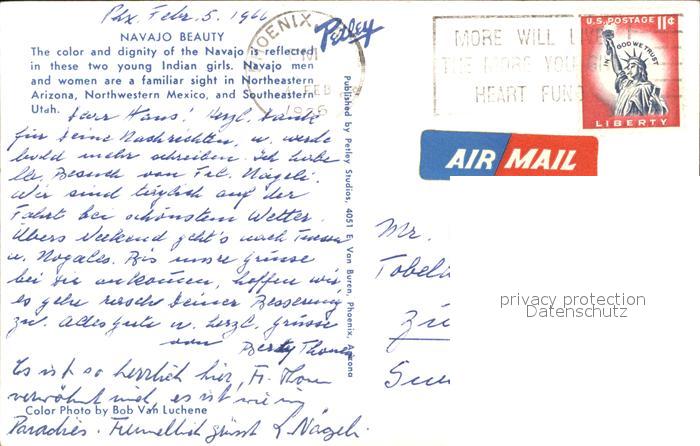 Phx. Febr. 5. 1966
NAVAJO BEAUTY
The color and dignity of the Navajo is reflected
in these two young Indian girls. Navajo men
and women are a familiar sight in Northeastern
Arizona, Northwestern Mexico, and Southeastern
Utah.
Petley
PHOENIX
PM
FEB
MORE WILL LI
THE MORE YOU GI
HEART FUND
U.S. POSTAGE 11¢
IN GOD WE TRUST
LIBERTY
AIR MAIL
Published by Petley Studios, 4051 E. Van Buren, Phoenix, Arizona
Hans! Herzl. Dank
für Deine Nachrichten, u. werde
bald mehr schreiben. Ich habe
Besuch von Frl. Nägeli.
Wir sind täglich auf der
Fahrt bei schönstem Wetter.
Übers Weekend geht's nach
u. Nogales. Bis unsre Grüsse
bei Dir ankommen, hoffen wir,
es gehe rasch Deiner Besserung
zu. Alles gute u. herzl. Grüsse
von Thomen
Es ist so herrlich hier, Fr. Thomen
verwöhnt mich, es ist wie im
Color Photo by Bob Van Luchene
Paradies. Freundlich grüsst L. Nägeli.
Mr.
Tobel
Zü
privacy protection
Datenschutz